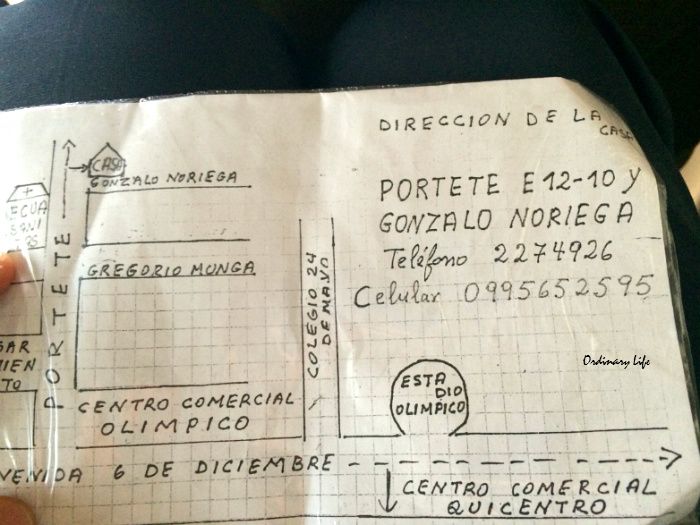 DIRECCION DE LA
CASA
PORTETE E12-10 Y
GONZALO NORIEGA
Teléfono 2274926
Celular 0995652595
CASA
GONZALO NORIEGA
PORTETE
GREGORIO MUNGA
COLEGIO 24
DE MAYO
CENTRO COMERCIAL
OLIMPICO
ESTA
DIO
OLIMPICO
VENIDA 6 DE DICIEMBRE
CENTRO COMERCIAL
QUICENTRO
ECUA
SANI
GAR
MIEN
TO
Ordinary Life